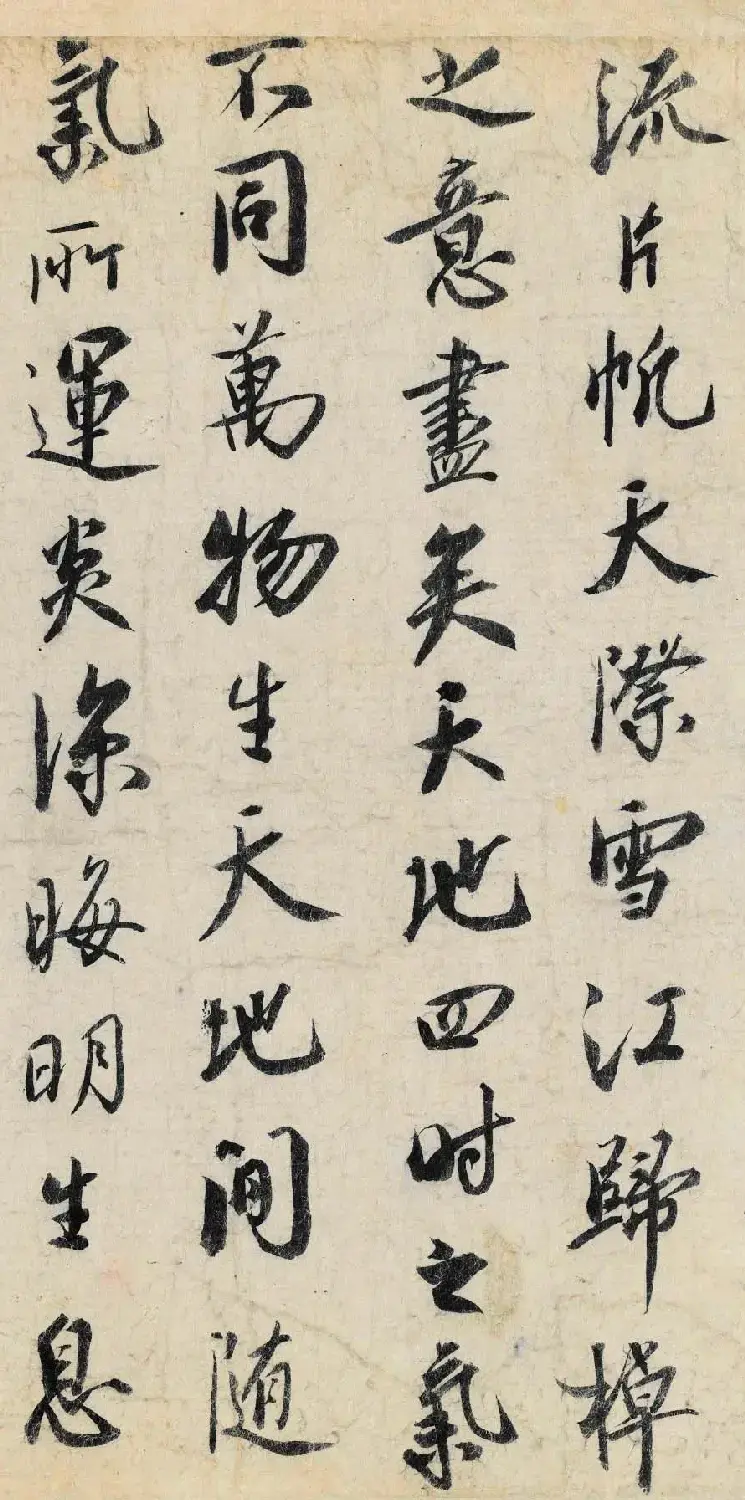 流片帆天際雪江歸棹
之意盡矣天地四時之氣
不同萬物生天地間随
氣所運炎涼晦明生息